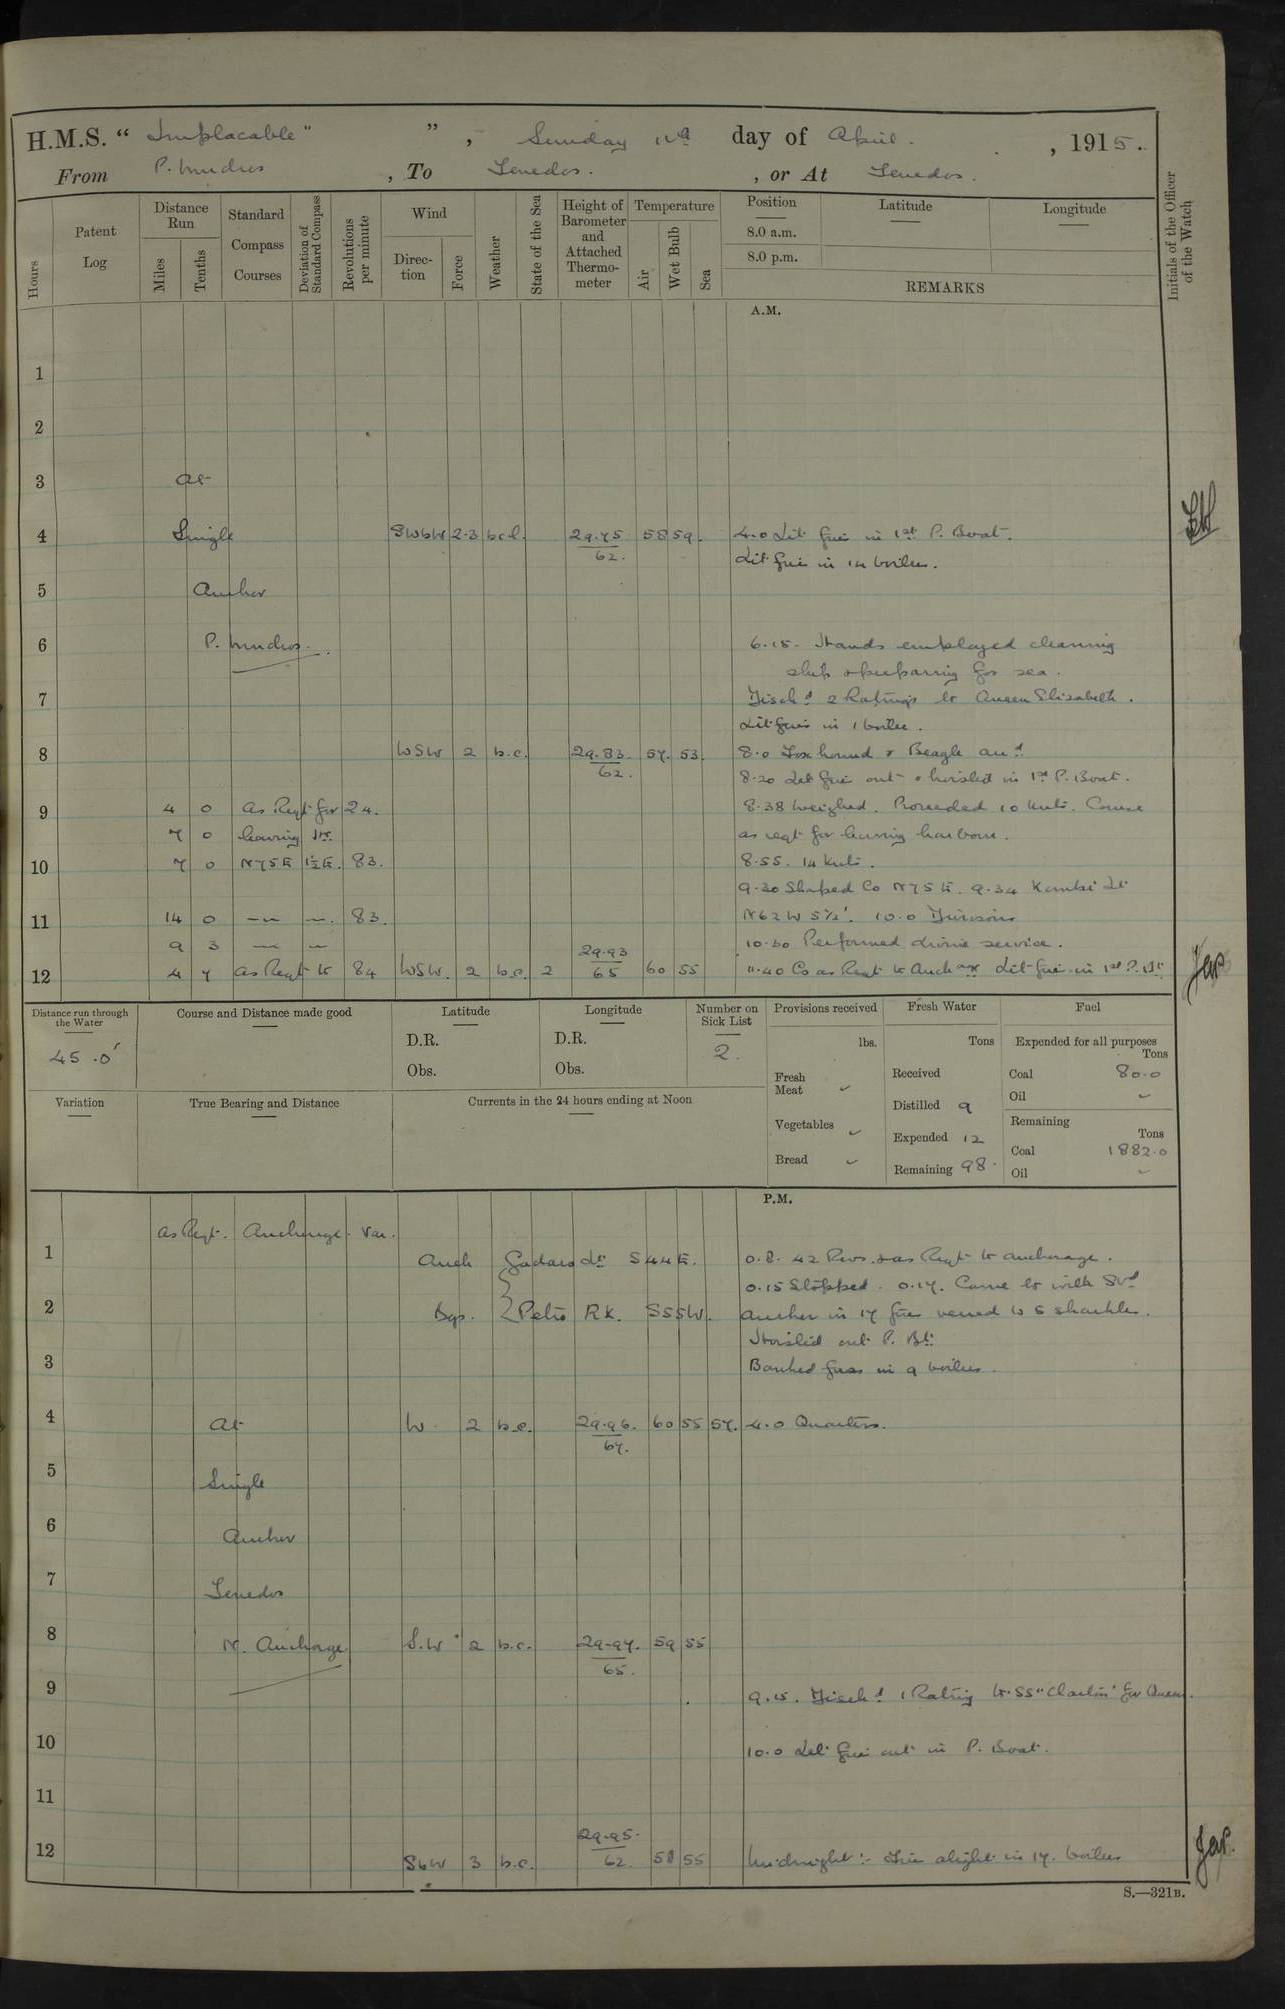 H.M.S. " Implacable " ", Sunday 11th day of April. , 1915.
From P. Mudros , To Tenedos. , or At Tenedos.
Hours
Patent Log
Distance Run
Miles
Tenths
Standard Compass Courses
Deviation of Standard Compass
Revolutions per minute
Wind
Direction
Force
Weather
State of the Sea
Height of Barometer and Attached Thermometer
Temperature
Air
Wet Bulb
Sea
Position
8.0 a.m.
8.0 p.m.
Latitude
Longitude
REMARKS
Initials of the Officer of the Watch
A.M.
1
2
3 At
4 Single SWbW 2-3 b.c.l. 29.75 58 59. 4.0 Lit fires in 1st P. Boat.
62. Lit fires in 14 boilers.
5 Anchor
6 P. Mudros. 6.15. Hands employed cleaning
ship & preparing for sea.
7 Disch'd 2 Ratings to Queen Elizabeth.
Lit fires in 1 boiler.
8 WSW 2 b.c. 29.83. 57. 53. 8.0 Foxhound & Beagle arrd
62. 8.20 Let fires out & hoisted in 1st P. Boat.
9 4 0 as Reqt for 24. 8.38 Weighed. Proceeded 10 knts. Course
7 0 leaving Hr. as reqt for leaving harbour.
10 7 0 N75E 1½E. 83. 8.55. 14 knts.
9.30 Shaped Co N75E. 9.34 Kombi Lt
11 14 0 —"— —. 83. N62W 5½'. 10.0 Divisions
9 3 — — 29.93 10.30 Performed divine service.
12 4 7 as Reqt to 84 WSW. 2 b.c. 2 65 60 55 11.40 Co as Reqt to Anchge Lit fires in 1st P. Bt
Distance run through the Water
45.0'
Course and Distance made good
Latitude
D.R.
Obs.
Longitude
D.R.
Obs.
Number on Sick List
2.
Provisions received
lbs.
Fresh Meat ✓
Vegetables ✓
Bread ✓
Fresh Water
Tons
Received
Distilled 9
Expended 12
Remaining 98.
Fuel
Expended for all purposes
Tons
Coal 80.0
Oil ✓
Remaining
Tons
Coal 1882.0
Oil ✓
Variation
True Bearing and Distance
Currents in the 24 hours ending at Noon
P.M.
as Reqt. Anchorage. Var.
1 Anch Gadaro Lt S44E. 0.8. 42 Revs. & as Reqt to anchorage.
0.15 Stopped. 0.17. Came to with Stbd
2 Bgs. Petro RK. S55W. anchor in 17 fms veered to 5 shackles.
Hoisted out P. Bt.
3 Banked fires in 9 boilers.
4 At W. 2 b.c. 29.96. 60 55 57. 4.0 Quarters.
67.
5 Single
6 Anchor
7 Tenedos
8 N. Anchorage. S.W 2 b.c. 29.97. 59 55
65.
9 9.15. Disch'd 1 Rating to SS for Queen.
10 10.0 Let fires out in P. Boat.
11
29.95.
12 SbW 3 b.c. 62. 58 55 Midnight :- Fires alight in 17. boilers
S.—321B.